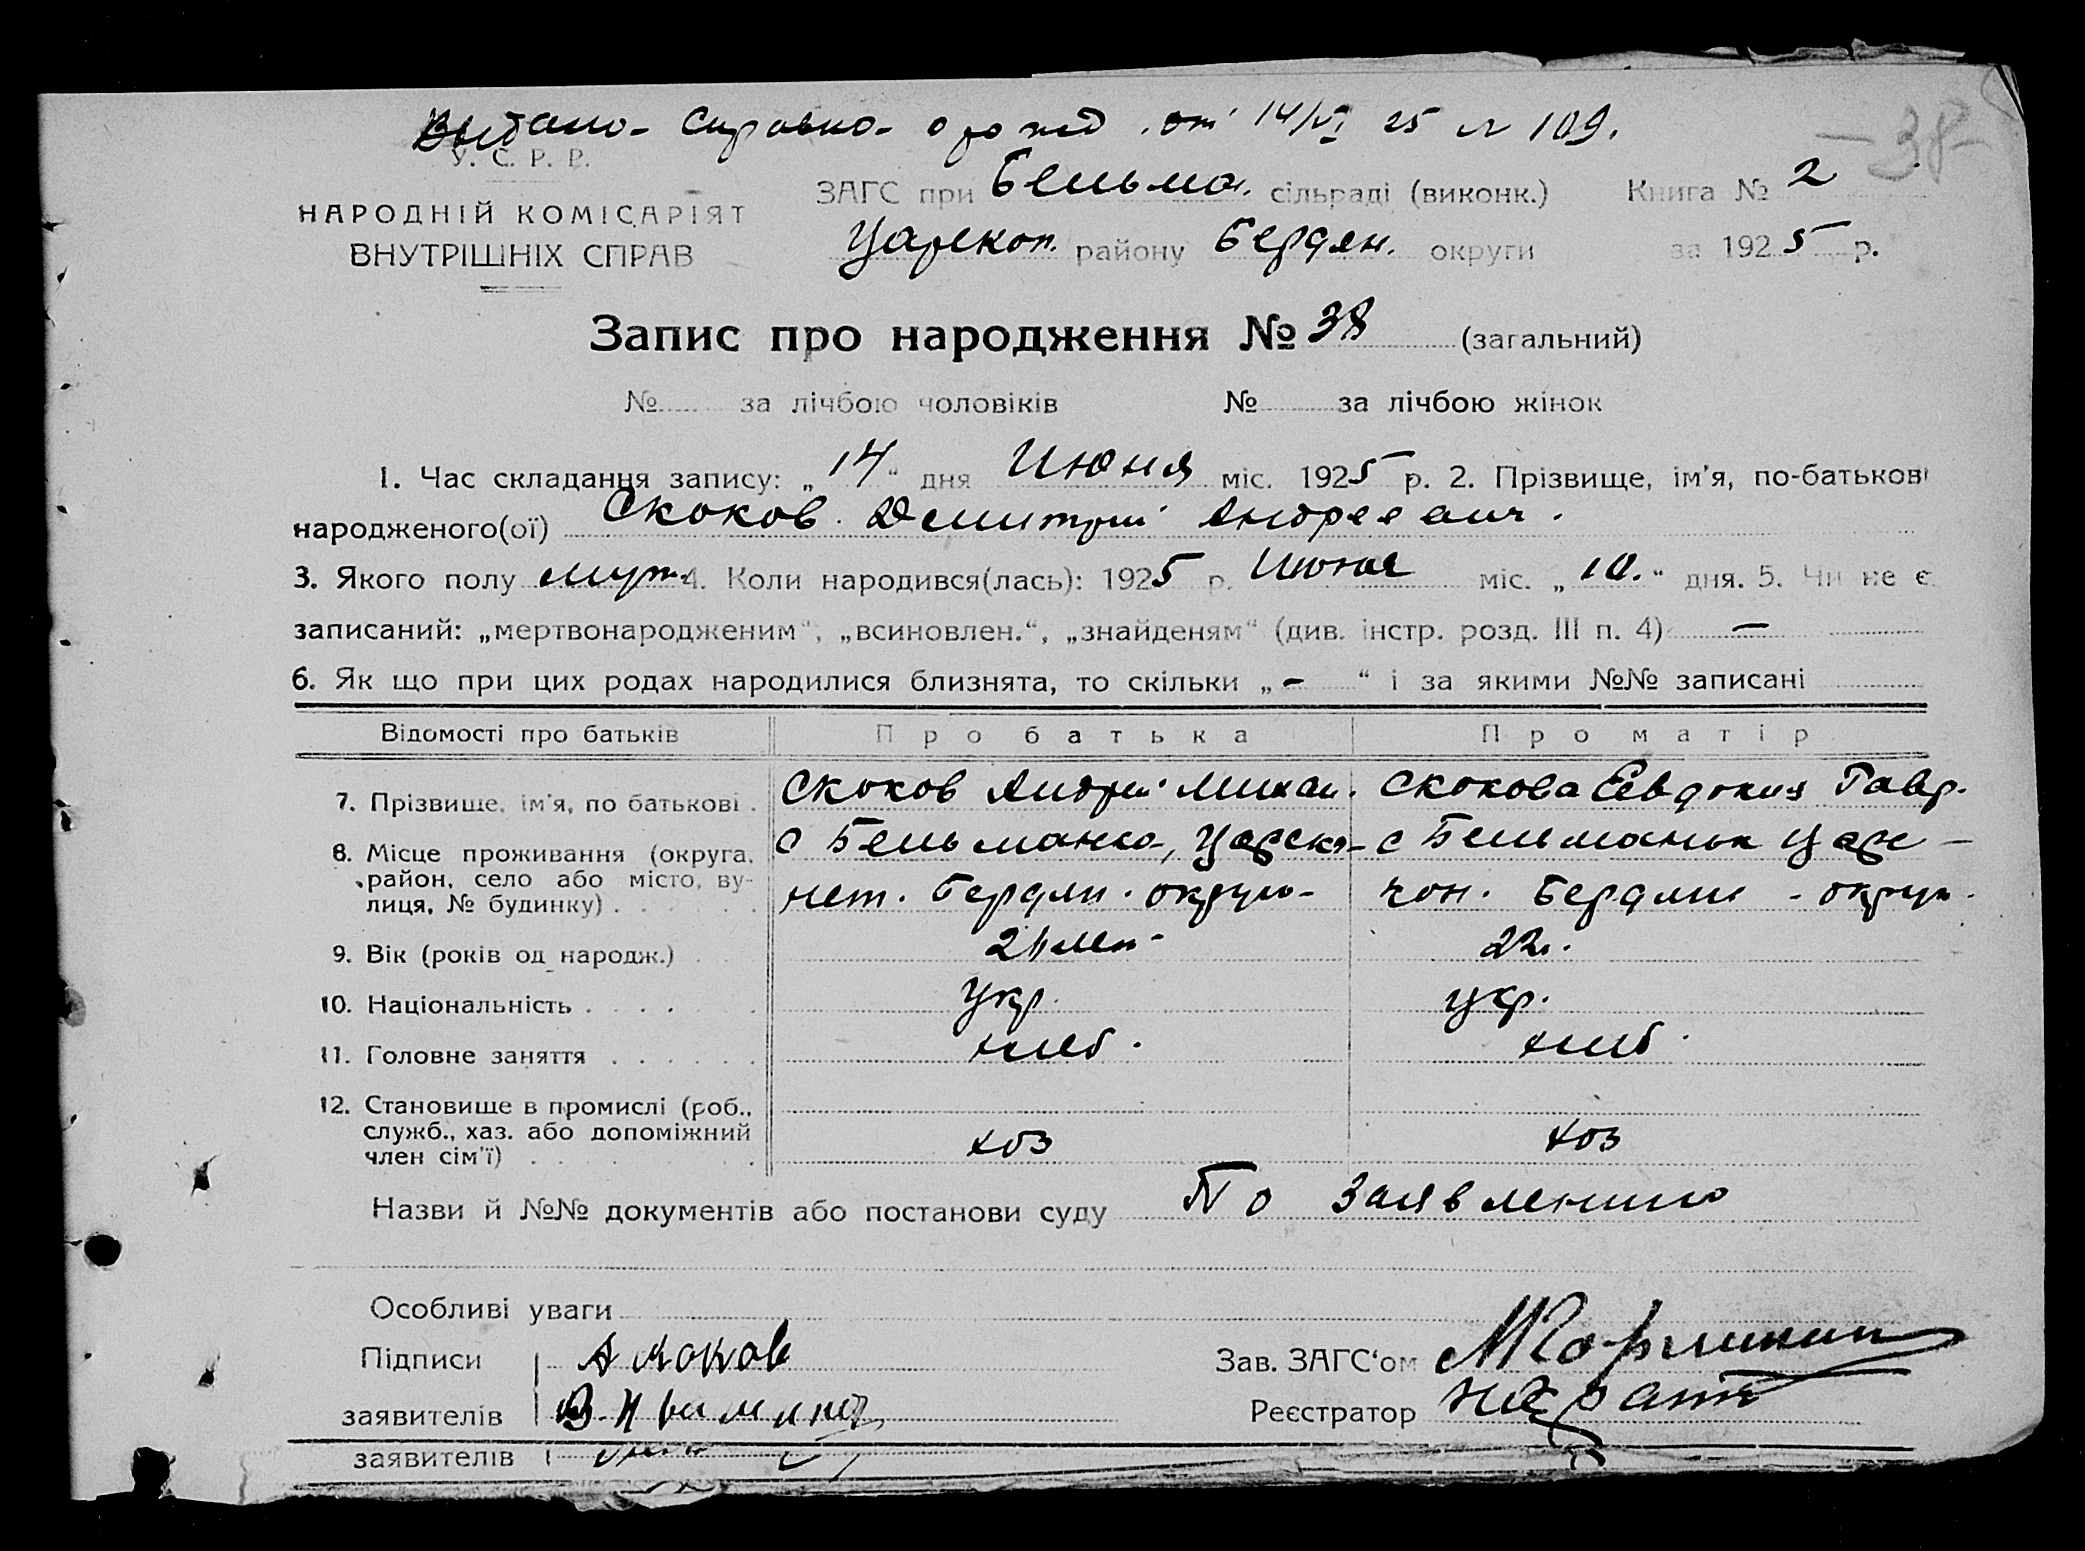 Выдано справка о рожд. от 14/VI 25 № 109.
-38-
У. С. Р. Р.
ЗАГС при Бельма. сільраді (виконк.) Книга № 2
НАРОДНІЙ КОМІСАРІЯТ
ВНУТРІШНІХ СПРАВ
Царекон. району Бердян. округи за 1925 р.
Запис про народження № 38 (загальний)
№ за лічбою чоловіків № за лічбою жінок
1. Час складання запису: „14“ дня Июня міс. 1925 р. 2. Прізвище, ім'я, по-батькові
народженого(ої) Скоков Дмитрий Андреевич.
3. Якого полу муж. 4. Коли народився(лась): 1925 р. Июня міс. „10.“ дня. 5. Чи не є
записаний: „мертвонародженим“, „всиновлен.“, „знайденям“ (див. інстр. розд. III п. 4) —
6. Як що при цих родах народилися близнята, то скільки „-“ і за якими №№ записані
Відомості про батьків Про батька Про матір
7. Прізвище, ім'я, по батькові . Скоков Андрей Михаи. Скокова Евдокия Гавр.
8. Місце проживання (округа, район, село або місто, вулиця, № будинку) . с Бельманка, Цареко- с Бельманка Царе-
кон. Бердян. округ.
9. Вік (років од народж.) 21 лет 22 л.
10. Національність . укр. укр.
11. Головне заняття . хлеб. хлеб.
12. Становище в промислі (роб., служб., хаз. або допоміжний член сім'ї) . хоз хоз
Назви й №№ документів або постанови суду По заявлению
Особливі уваги
Підписи А Скоков Зав. ЗАГС'ом
заявителів Реєстратор
заявителів